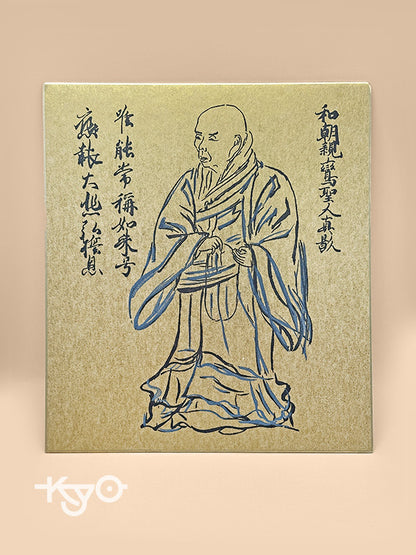 和朝親鸞聖人真影
唯能常稱如来号
應報大悲弘誓恩
KYO